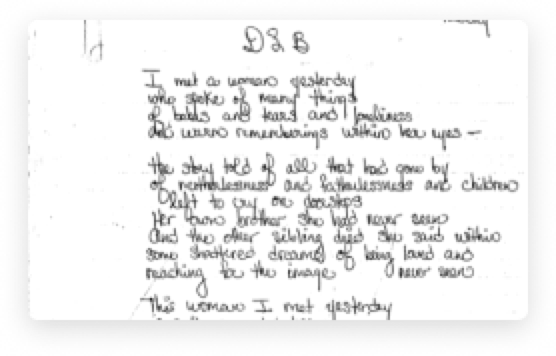 DSB
I met a woman yesterday
who spoke of many things
of babes and tears and loneliness
and warm rememberings within her eyes —
the story told of all that had gone by
of motherlessness and fatherlessness and children
left to cry on doorsteps
Her own brother she had never seen
And the other sibling died she said within
some shattered dreams of being loved and
reaching for the image never seen
This woman I met yesterday